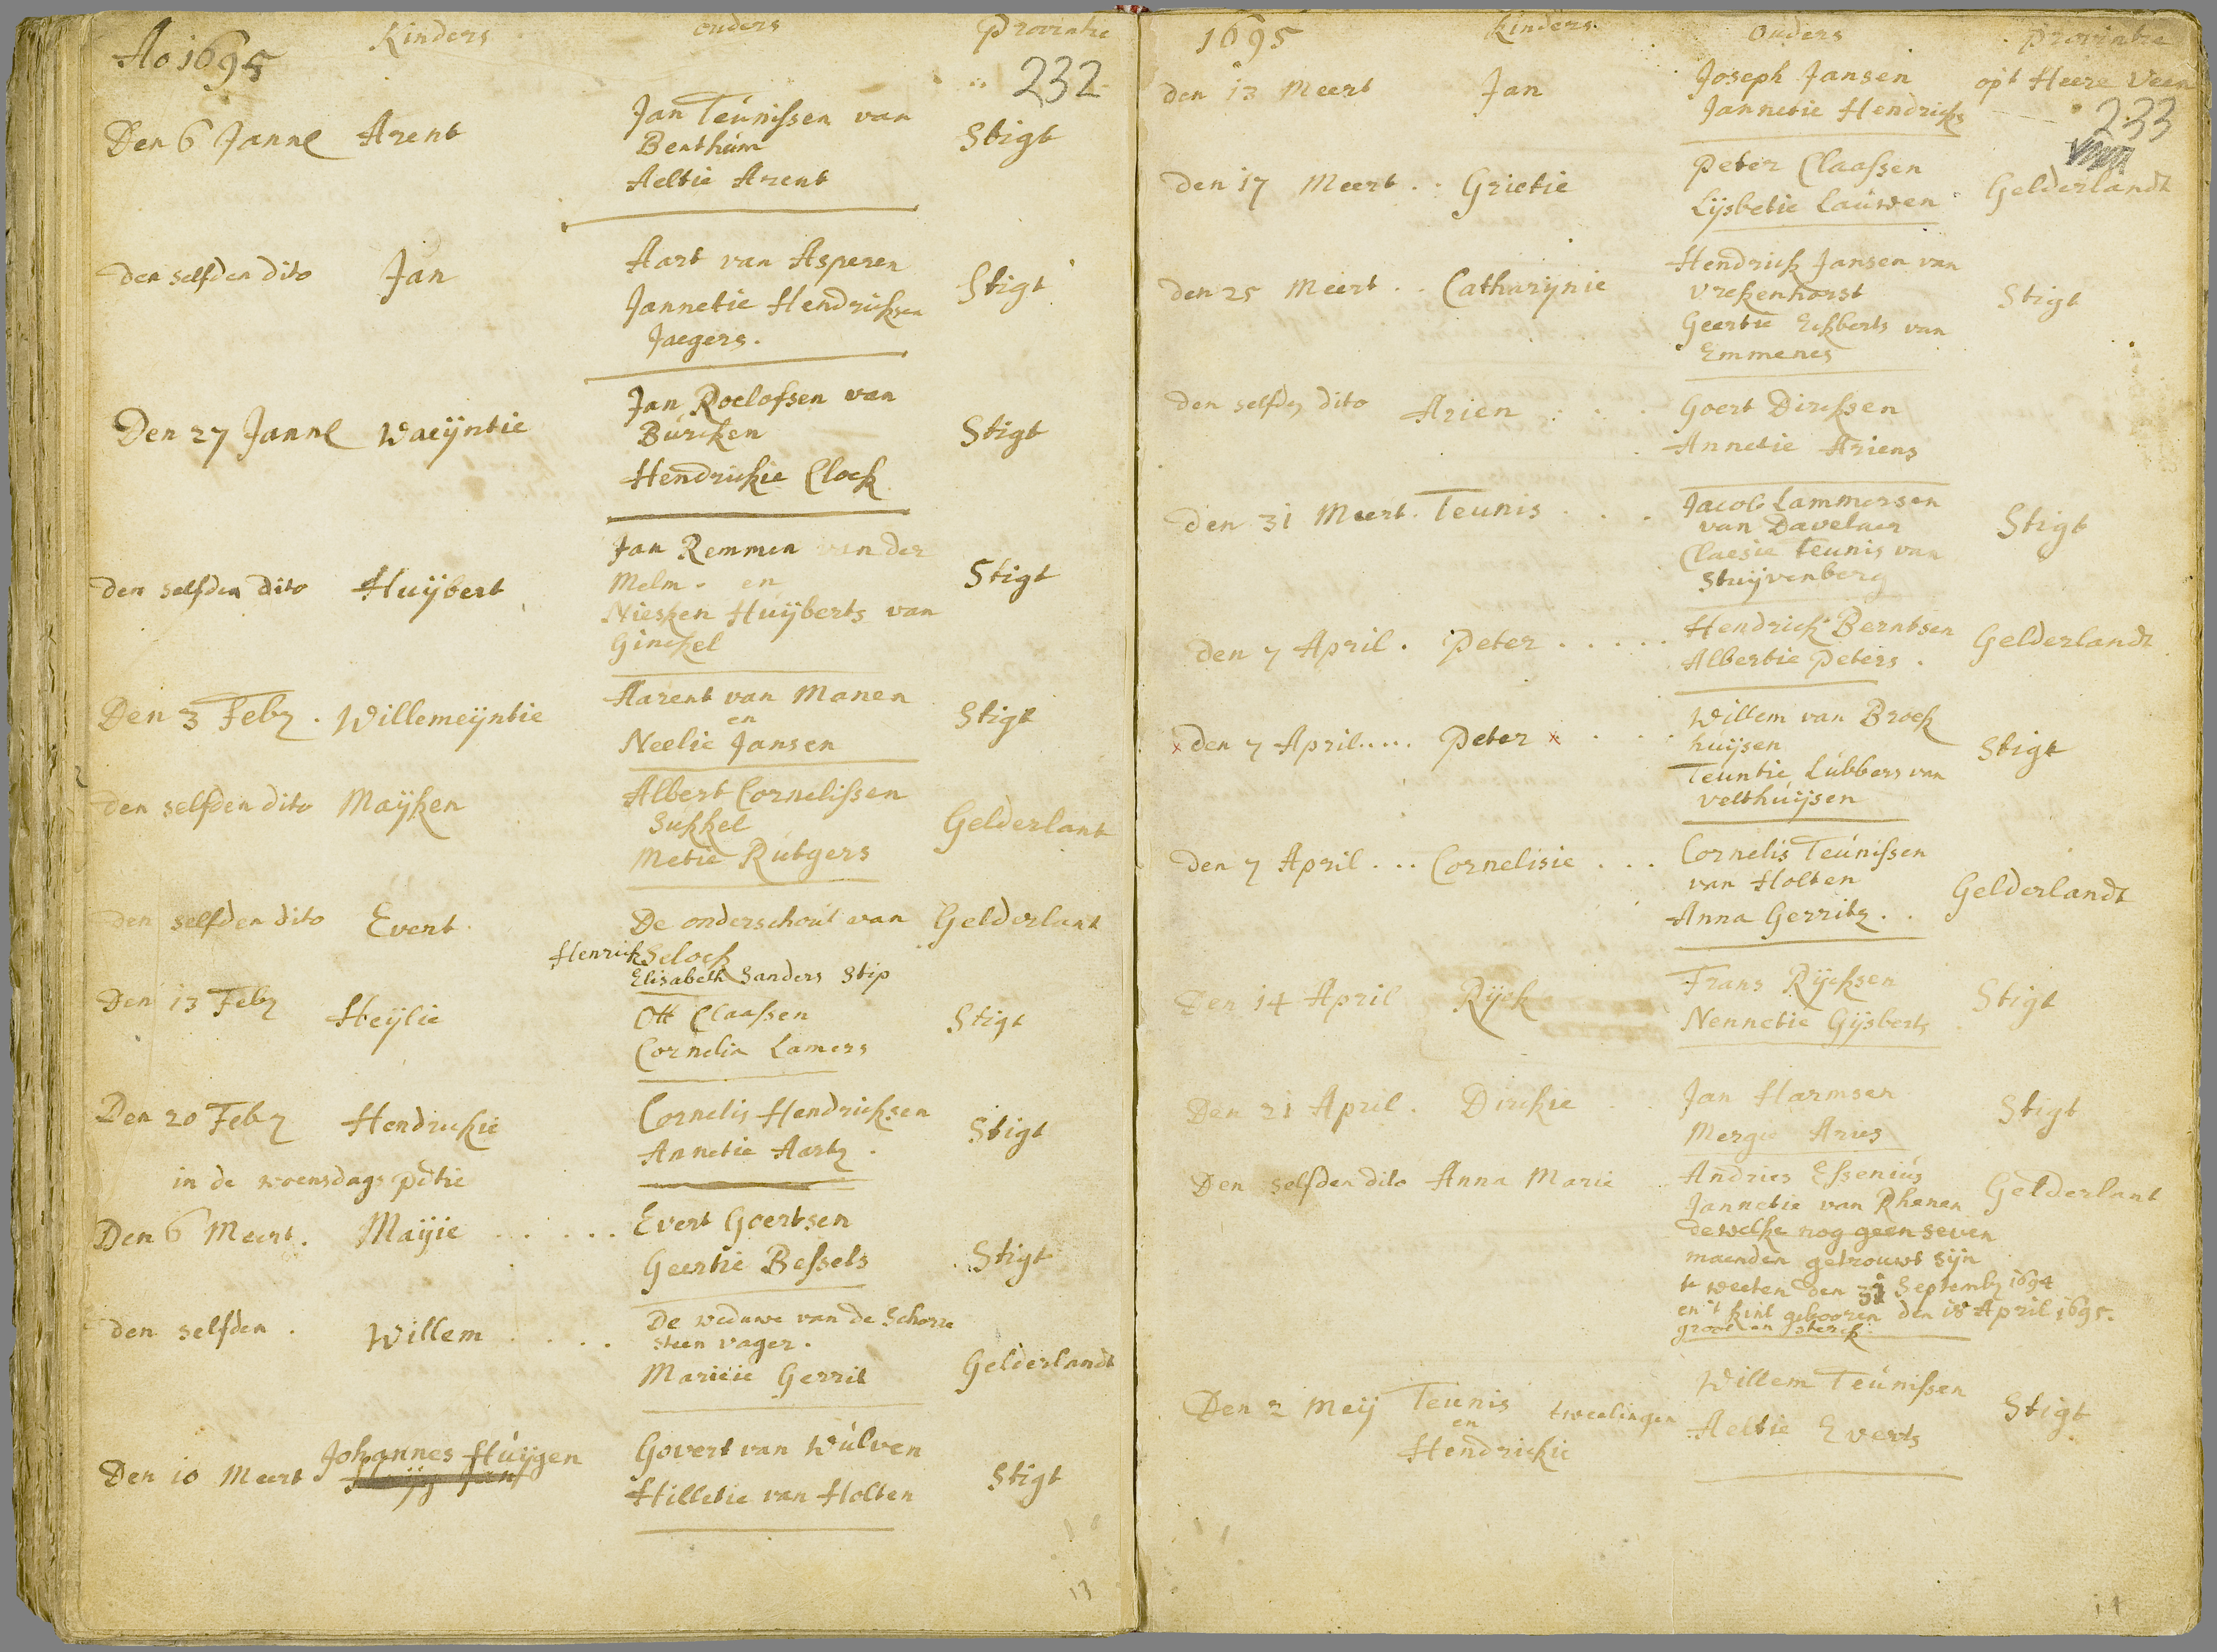 Ao 1695 Kinders ouders Provintie
232
Den 6 Jannl Arent Jan Teunissen van
Benthum Stigt
Aeltie Arent
den selfden dito Jan Aart van Asperen
Jannetie Hendricksen Stigt
Jaegers.
Den 27 Jannl Waeijntie Jan Roelofsen van
Burcken Stigt
Hendrickie Clock
den selfden dito Huijbert Jan Remmen van der
Melm. en Stigt
Niesken Huijberts van
Ginckel
Den 3 Feb. Willemeijntie Aarent van Manen
en Stigt
Neelie Jansen
den selfden dito Maijken Albert Cornelissen
Sukkel Gelderlant
Metie Rutgers
den selfden dito Evert De onderschout van Gelderlant
Henrick Selock
Elisabeth Sanders Stip
Den 13 Feb Heijlie Ott Claassen Stigt
Cornelia Lamers
Den 20 Feb Hendrickie Cornelis Hendricksen
Annetie Aarts. Stigt
in de woensdags pdtie
Den 6 Meert. Maijie ..... Evert Goertsen
Geertie Bessels Stigt
den selfden. Willem .... De weduwe van de Schorre
steen vager.
Maritie Gerrit Gelderlandt
Johannes Huijgen
Den 10 Meert Huijg Jan Govert van Wulven
Hilletie van Holten Stigt
13
1695 Kinders Ouders Provintie
den 13 Meert Jan Joseph Jansen opt Heere Veen
Jannetie Hendricks
233
den 17 Meert.. Grietie Peter Claassen
Lijsbetie Lauwen Gelderlandt
den 25 Meert.. Catharijnie Hendrick Jansen van
Vreckenhorst Stigt
Geertie Eckberts van
Emmenes
den selfden dito Arien Goert Dirckssen
Annetie Ariens
den 31 Meert. Teunis ... Jacob Lammersen
van Davelaer Stigt
Claesie Teunis van
Stuijvenberg
den 7 April. Peter ..... Hendrick Berntsen
Albertie Peters. Gelderlandt
x den 7 April..... Peter x ... Willem van Broek
huijsen Stigt
Teuntie Lubbers van
velthuijsen
den 7 April... Cornelisie ... Cornelis Teunissen
van Holten Gelderlandt
Anna Gerrits..
Den 14 April Rijck Frans Rijcksen Stigt
Nennetie Gijsberts
Den 21 April. Dirckie Jan Harmsen
Mergie Aries Stigt
Den selfden dito Anna Marie Andries Essenius
Jannetie van Rhenen Gelderlant
dewelke nog geen seven
maenden getrouwt sijn
te weeten den Septemb 1694
en 't kint gebooren den 18 April 1695.
groot en sterck.
Den 2 Meij Teunis tweelingen Willem Teunissen
en Stigt
Hendrickie Aeltie Everts
14